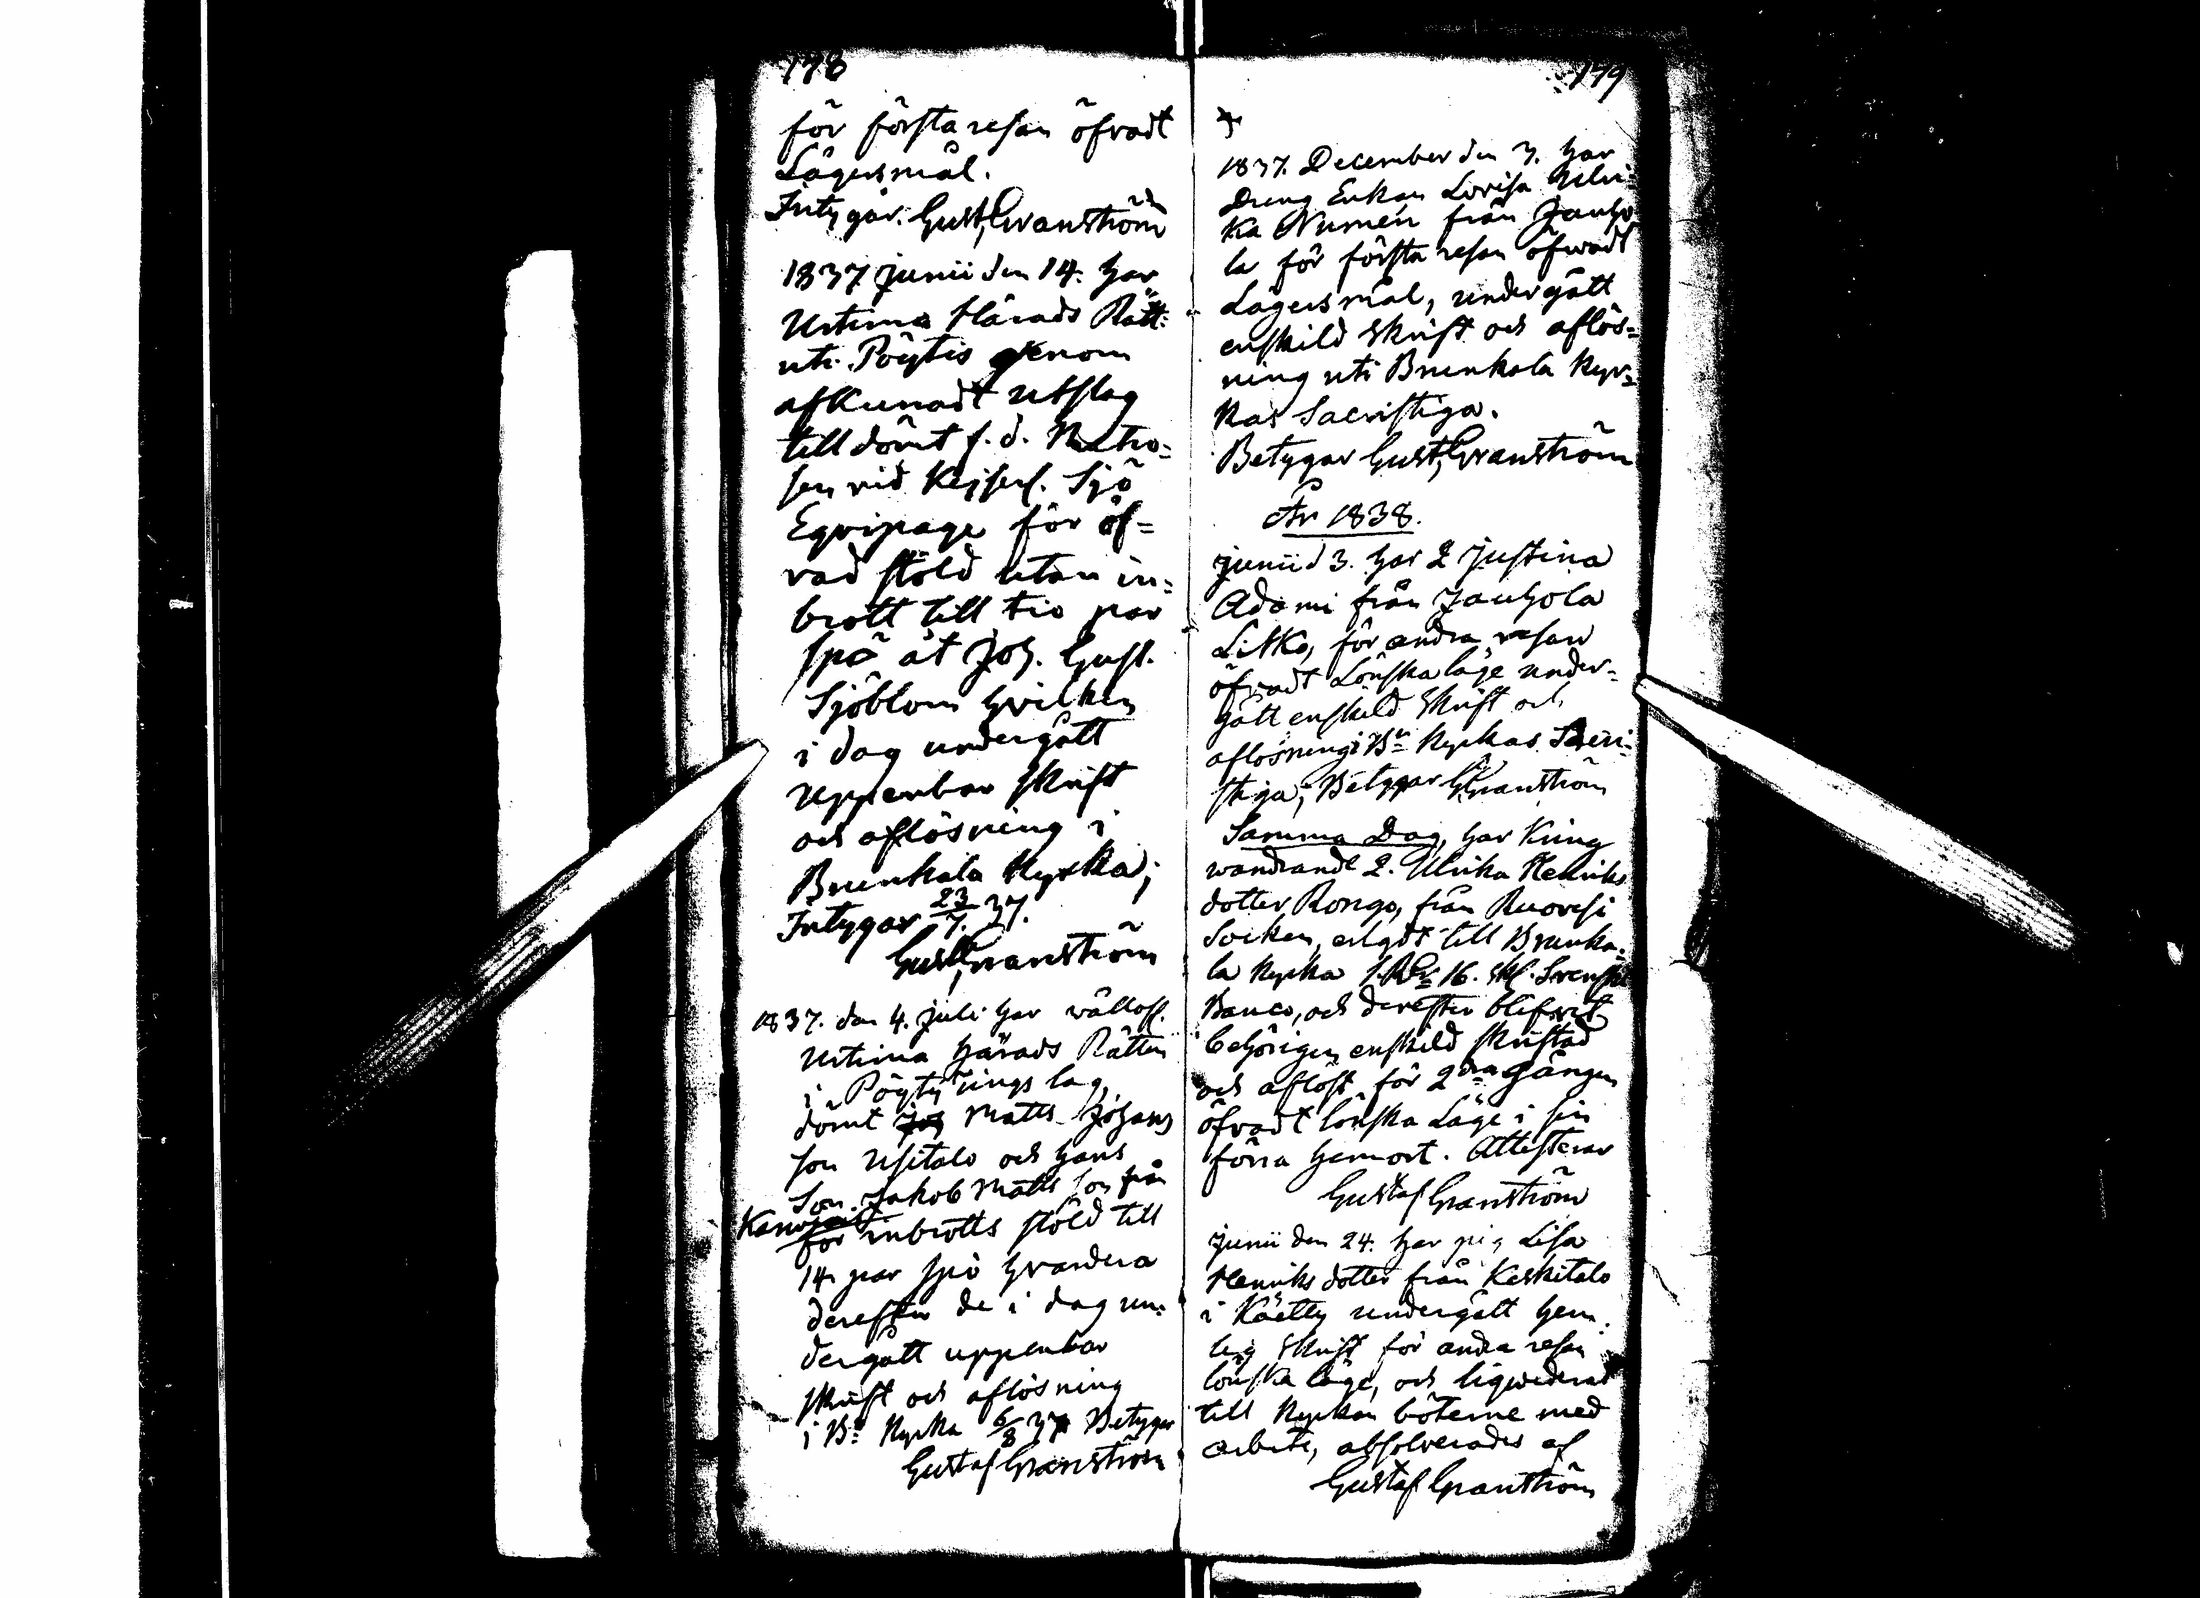 178
för första resan öfvadt
Lägersmål.
Intygar. Gust. Granström
1837 junii den 14. har
Urtima Härads Rätt:
uti Pöytis genom
afkunadt utslag
till dömt f. d. Matro=
sen vid Kejserl. Sjö
Eqvipage för öf=
vad stöld utan in=
brott till tio par
spö åt Joh. Gust.
Sjöblom hvilken
i dag undergått
uppenbar skrift
och aflösning i
Brunkala Kyrka;
Intygar 23/7. 37.
Gust. Granström
1837. den 4. juli har vällofl.
Urtima härads Rätten
i Pöytis Tings lag,
dömt Matts Johans
son Usitalo och hans
Son Jakob Matts son från
för inbrotts stöld till
14 par spö hvardera
derefter de i dag un=
dergått uppenbar
skrift och aflösning
i Bª Kyrka 6/8 37 Betygar
Gustaf Granström
179
1837. December den 3. har
Dreng Enkan Lovisa Helvi=
ka Numén från Jauho
la för första resan öfvadt
Lägersmål, undergått
enskild skrift och aflös=
ning uti Brunkala Kyr=
kas Sacristiga.
Betygar Gust. Granström
År 1838.
junii d 3. har Q Justina
Adami från Jauhola
Litko, för andra resan
öfvadt Lönskaläge under=
gått enskild skrift och
aflösning i Bª Kyrkas Sacri=
stiga; Betygar G. Granström
Samma Dag, har Kring
wandrande Q. Ulrika Henriks
dotter Rongo, från Ruovesi
Socken, erlgdt till Brunka=
la Kyrka 1. Rdr 16. skl. Svenskt
Banco, och derefter blifvit
behörigen enskild skriftad
och aflöst för 2dra gången
öfvadt lönska Läge i sin
förra hemort. Attesterar
Gustaf Granström
Junii den 24. har pig Lisa
Henriks dotter från Keskitalo
i Käetty undergått hem=
lig skrift för andra resan
lönska läge, och liqviderat
till Kyrkan böterne med
arbete, absolverades af
Gustaf Granström